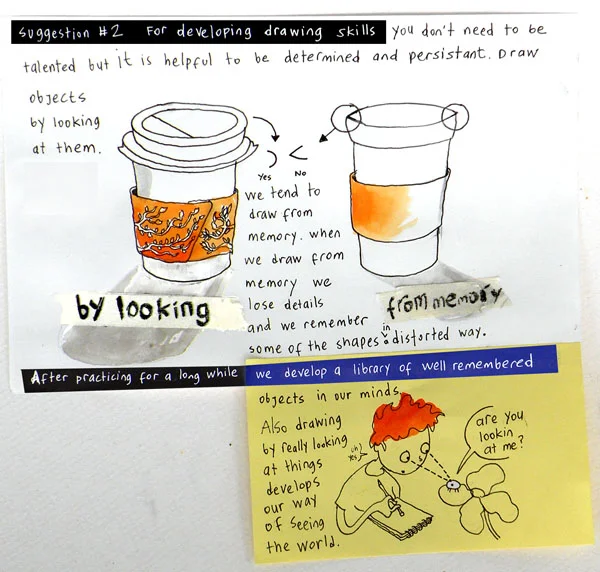 Suggestion #2 For developing drawing skills you don't need to be
talented but it is helpful to be determined and persistant. Draw
objects
by looking
at them.
Yes
No
we tend to
draw from
memory. when
we draw from
memory we
lose details
and we remember
some of the shapes in distorted way.
by looking
from memory
After practicing for a long while we develop a library of well remembered
objects in our minds.
Also drawing
by really looking
at things
develops
our way
of seeing
the world.
oh!
Yes
are you
lookin
at me?